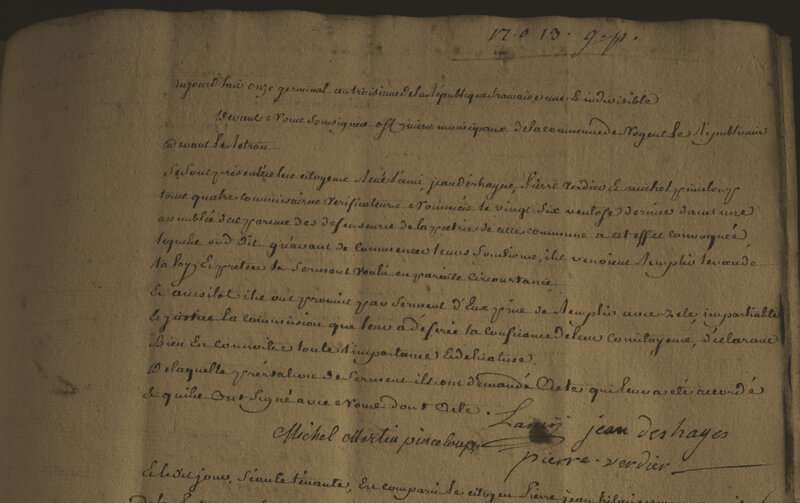 17. 0 13. g. p.
aujourd'hui onze germinal an troisieme de la République francaise une & indivisible
Devant Nous Soussignés officiers municipaux de la commune de Nogent le Républicain
Devant le Rotrou
Se Sont présentés les citoyens René Lami, jean deshayes, Pierre verdier & michel pinceloup
tous quatre commissaires verificateurs Nommés le vingt Six ventose dernier dans une
assemblée des parens des defenseurs de la patrie de cette commune a cet effet convoqués
lesquels ont dit qu'avant de commencer leurs fonctions, ils venoient Remplir le vœu de
la loy, Et preter le Serment voulu en pareille circonstance
Et aussitot ils ont promis par Serment d'Eux pris de Remplir avec zele impartialité
Et justice la commission que leur a déferée la confiance de leurs concitoyens, déclarant
Bien En connoitre toute l'importance & delicatesse.
De laquelle préstation de Serment ils ont demandé Acte qui leur a été accordé
& qu'ils ont Signé avec Nous dont Acte.
Lamy jean deshayes
Michel Martin pinceloup
pierre-verdier
Et le dit jour, Séance tenante, Est comparû le citoyen Pierre jean hilaire